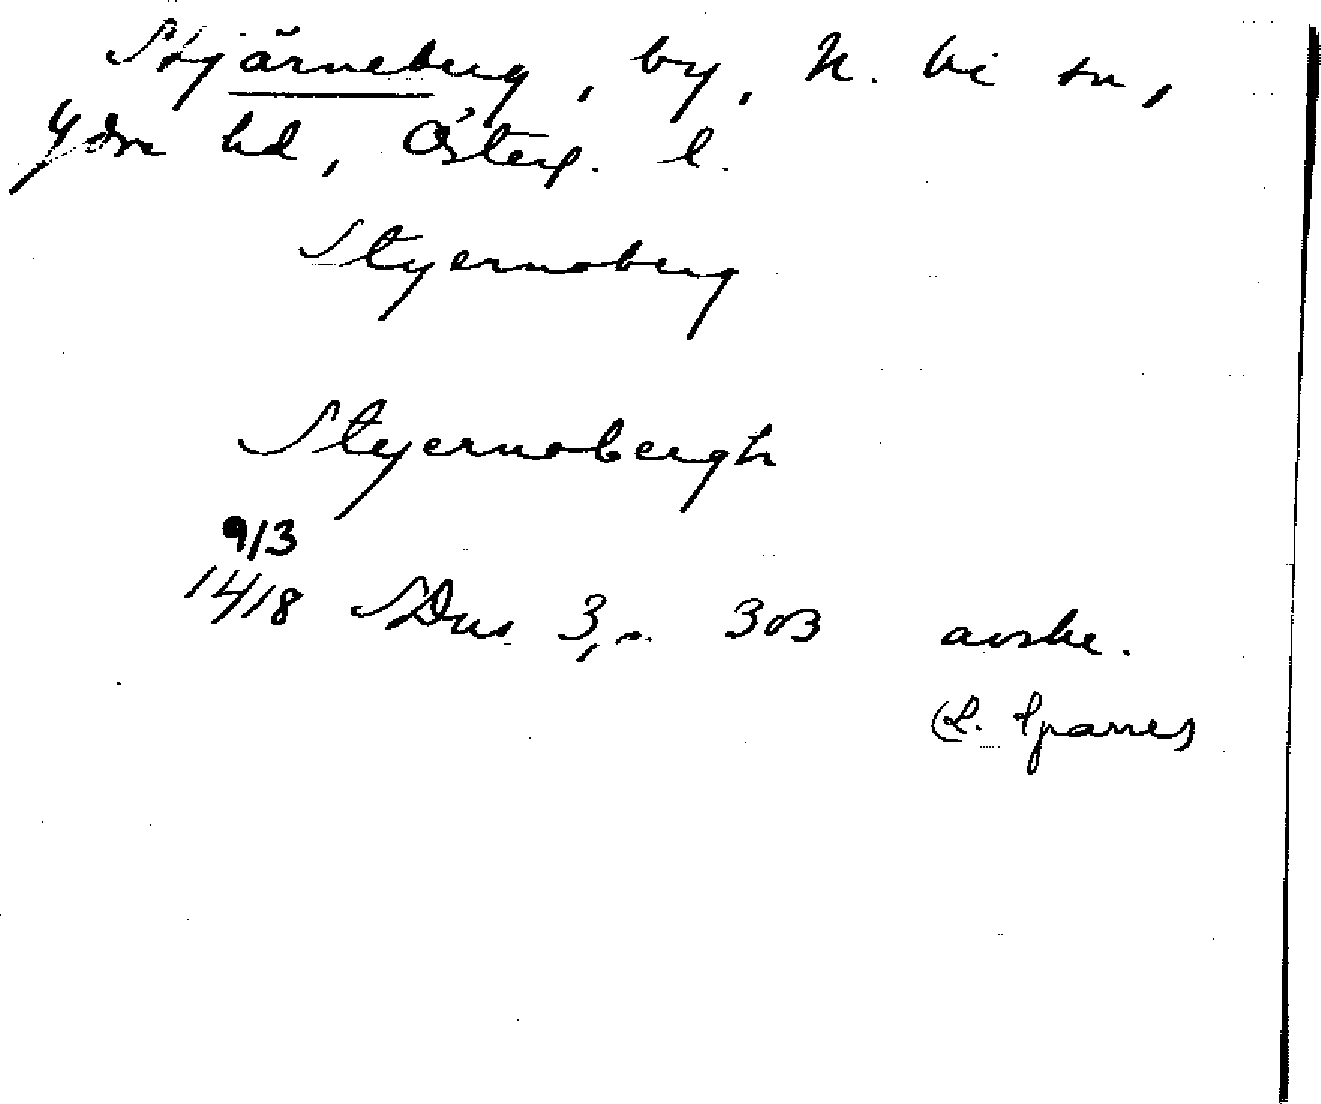 Stjärneberg, by, N. Vi sn,
Ydre hd, Österg. l.
Styernoberg
Styernobergh
9/3
1418 SDns 3, s. 303 avskr.
(L. Sparres